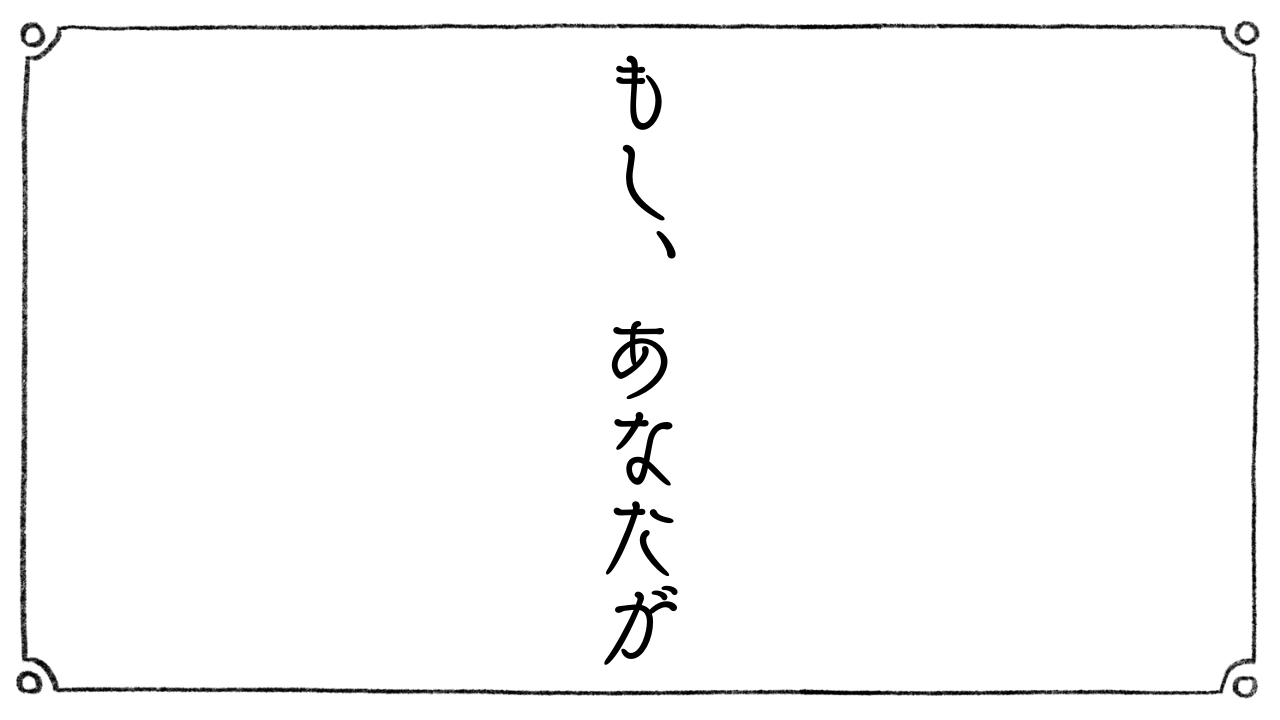 もし、あなたが